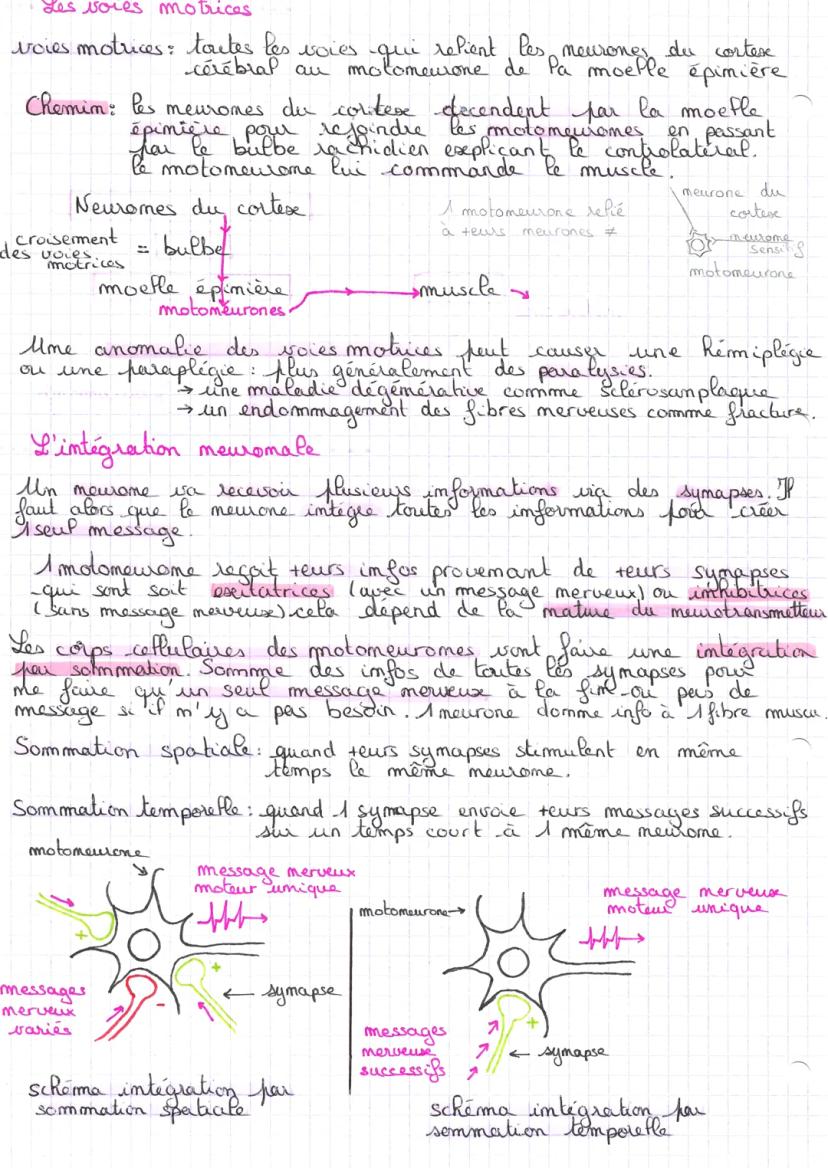 Les voies motrices
voies motrices : toutes les voies qui relient les neurones du cortex
cérébral au motoneurone de la moelle épinière
Chemin : les neurones du cortex decendent par la moelle
épinière pour rejoindre les motoneurones en passant
par le bulbe rachidien expliquant le controlatéral.
le motoneurone lui commande le muscle.
Neurones du cortex
1 motoneurone relié
à +eurs neurones ≠
neurone du
cortex
neurone
sensitif
motoneurone
croisement
des voies
motrices
= bulbe
moelle épinière
motoneurones
muscle
Une anomalie des voies motrices peut causer une hémiplégie
ou une paraplégie : plus généralement des paralysies.
→ une maladie dégénérative comme sclérosanplaque
→ un endommagement des fibres nerveuses comme fracture.
L'intégration neuronale
Un neurone va recevoir plusieurs informations via des synapses. Il
faut alors que le neurone intègre toutes les informations pour créer
1 seul message.
1 motoneurone reçoit +eurs infos provenant de +eurs synapses
qui sont soit exitatrices (avec un message nerveux) ou inhibitrices
(sans message nerveux) cela dépend de la nature du neurotransmetteur
Les corps cellulaires des motoneurones vont faire une intégration
par sommation. Somme des infos de toutes les synapses pour
ne faire qu'un seul message nerveux à la fin ou pas de
message si il n'y a pas besoin. 1 neurone donne info à 1 fibre muscu.
Sommation spatiale : quand +eurs synapses stimulent en même
temps le même neurone.
Sommation temporelle : quand 1 synapse envoie +eurs messages successifs
sur un temps court à 1 même neurone.
motoneurone
message nerveux
moteur unique
+
+
-
messages
nerveux
variés
← synapse
schéma intégration par
sommation spatiale
motoneurone →
message nerveux
moteur unique
+
messages
nerveux
successifs
← synapse
schéma intégration par
sommation temporelle